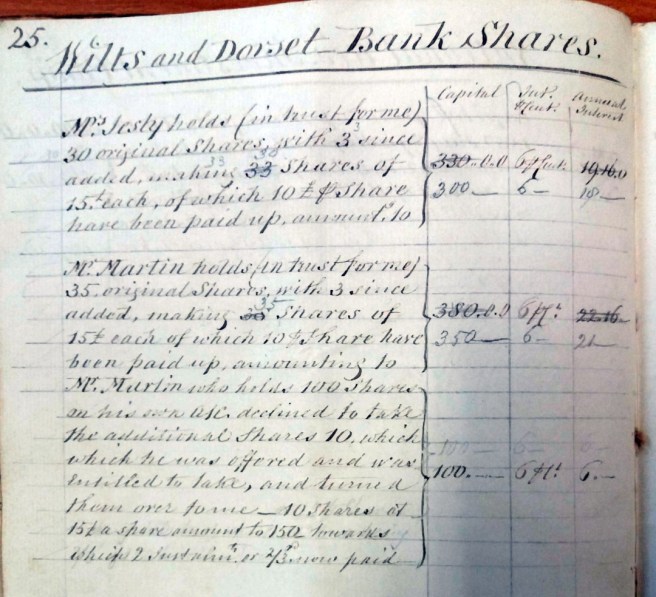 25.
Wilts and Dorset Bank Shares.
Capital Int. ⅌Cent. Annual Interest
Mrs. Jesty holds (in trust for me)
30 original Shares, with 3 since
added, making 33 Shares of
330..0.0 6⅌Cent. 19.16.0
15£ each, of which 10£ ⅌ Share
300— 6— 18—
have been paid up, amount. to
Mr. Martin holds, (in trust for me)
35. original Shares, with 3 since
added, making 38 35 Shares of
380..0.0 6⅌Ct. 22.16—
15£ each of which 10£⅌Share have
350— 6— 21—
been paid up, amounting to
Mr. Martin who holds 100 Shares
on his own a/c. declined to take
the additional Shares 10. which
100— 6—
which he was offered and was
100.— 6⅌Ct. 6.—
entitled to take, and turned
them over to me — 10 Shares at
15£ a share amount to 150£ towards
which 2 or 2/3 now paid